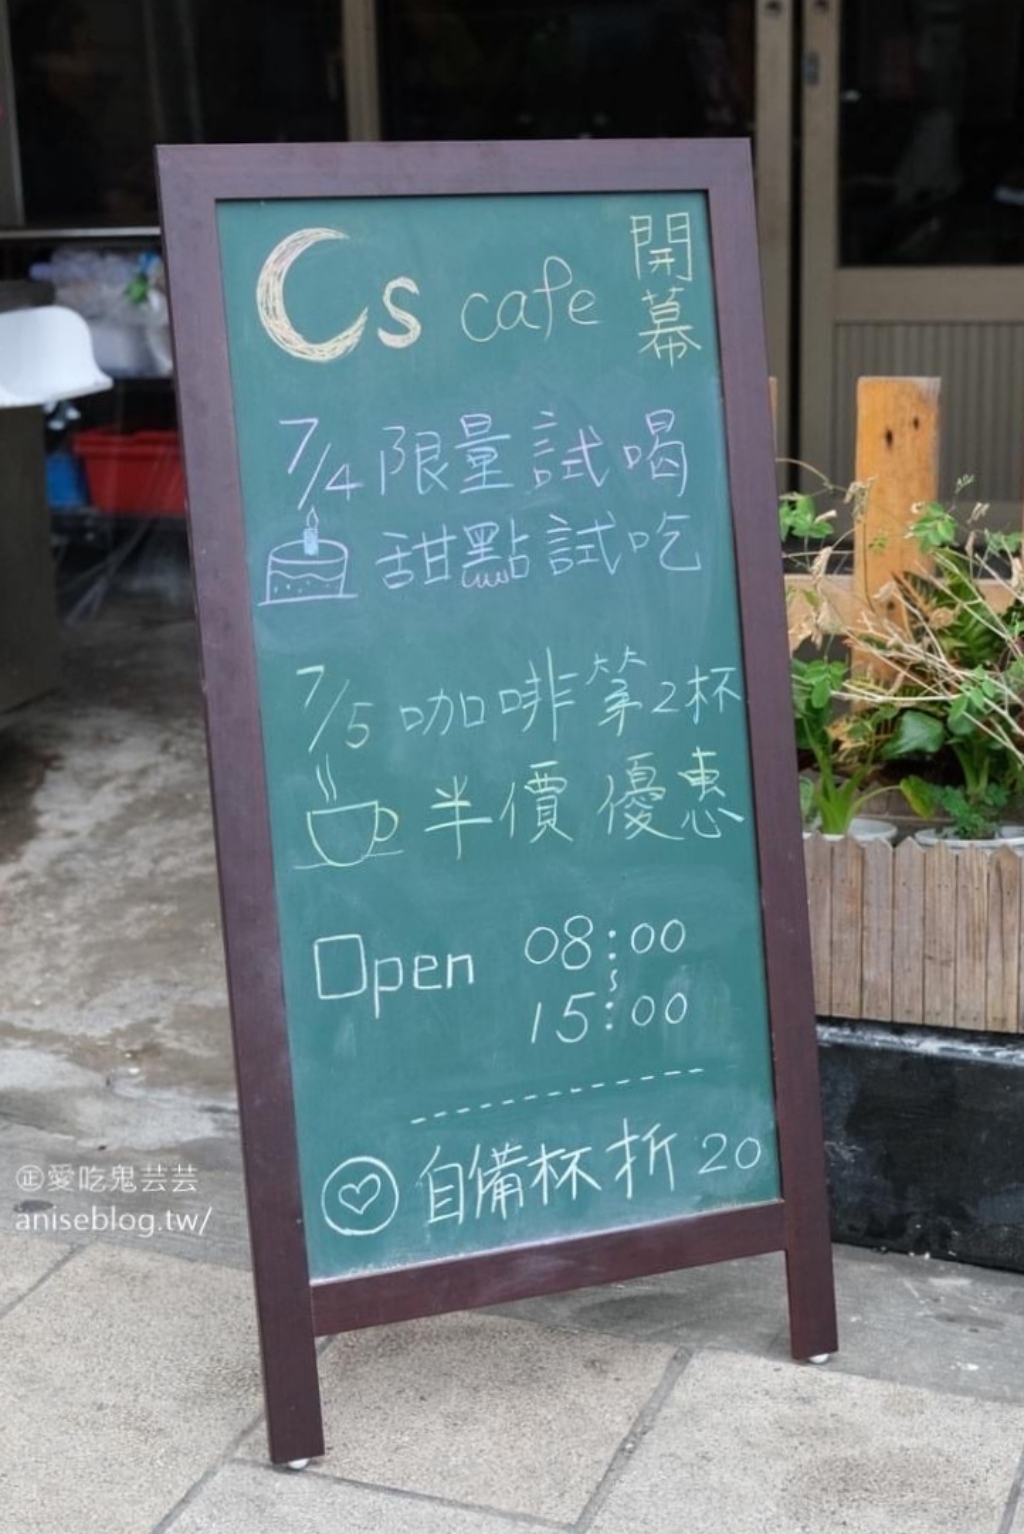 Cs cafe 開幕
7/4 限量試喝
甜點試吃
7/5 咖啡第2杯
半價優惠
Open 08:00
~
15:00
自備杯折20
㊣愛吃鬼芸芸
aniseblog.tw/